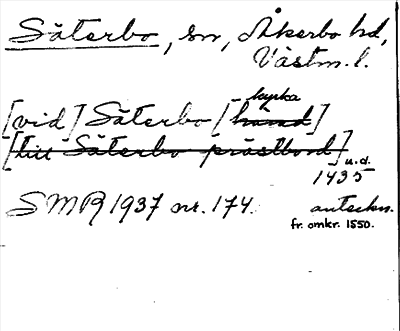 Säterbo, sn, Åkerbo hd,
Västm. l.
kyrka
[vid] Säterbo [hänad]
[till Säterbo prästbord]
u.d.
1435
SMR 1937 nr. 174. anteckn.
fr. omkr. 1550.